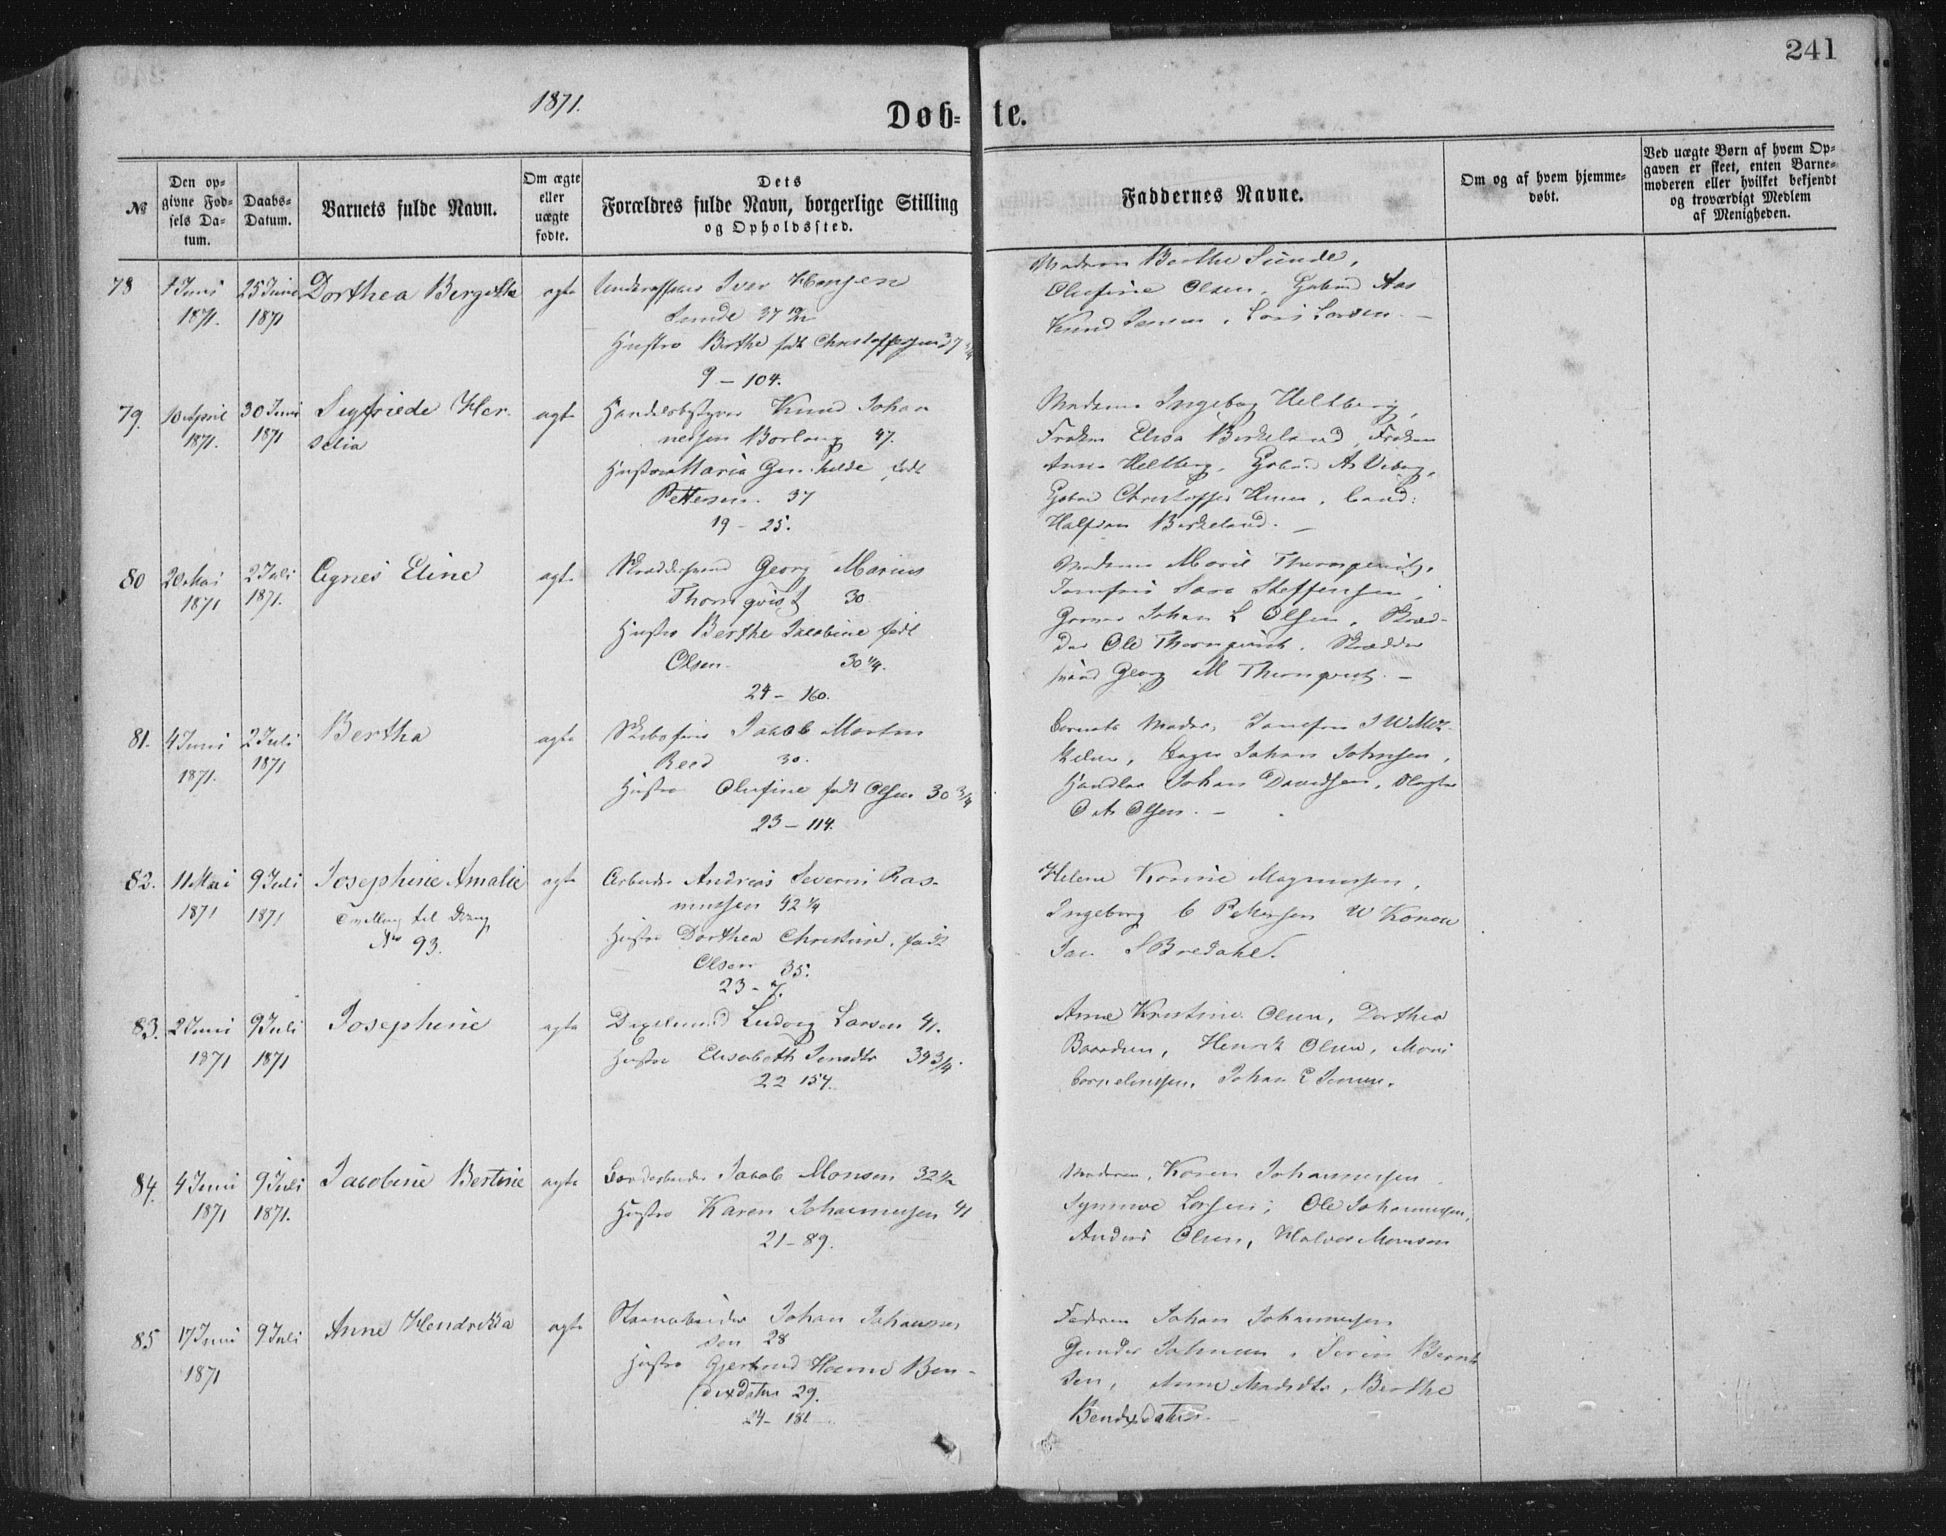 241
1871.
Døb-te.
№
Den op-
givne Fød-
sels Da-
tum.
Daabs-
Datum.
Barnets fulde Navn.
Om ægte
eller
uægte
fødte.
Dets
Forældres fulde Navn, borgerlige Stilling
og Opholdssted.
Faddernes Navne.
Om og af hvem hjemme-
døbt.
Ved uægte Børn af hvem Op-
gaven er skeet, enten Barne-
moderen eller hvilket bekjendt
og troværdigt Medlem
af Menigheden.
78
1 Juni
1871.
25 Juni
1871
Dorthea Bergitte
ægte
Iver Hansen
Sunde 37
Hustro Berthe født Christoffersen 37
9 - 104.
Madam Berthe Sunde,
Olufine Olsen,
Knud Jensen, Lars Larsen. -
79.
10 April
1871.
30 Juni
1871
Sigfriede Her-
selia
ægte
Handelsbestyrer Knud Johan
nessen Borlaug 47.
Hustro Maria Gunhilde født
Pettersen. 37
19 - 25.
Madame Ingeborg Heltberg,
Frøken Elisa Birkeland, Frøken
Anna Heltberg,
Christoffer Cand:
Halfdan Birkeland. -
80
20 Mai
1871
2 Juli
1871.
Agnes Eline
ægte
Georg Marius
Thornqvist 30
Hustro Berthe Jacobine født
Olsen. 30 1/4.
24 - 160.
Madame Marie Thornqvist,
Jomfru Sara Steffensen,
Johan L Olsen, Skræd-
der Ole Thornqvist, Skrædder
svend Georg M Thornqvist. -
81.
4 Juni
1871.
2 Juli
1871
Bertha
ægte
Jakob Morten
Reed 30.
Hustro Olufine født Olsen 30 3/4
23 - 114.
Barnets Moder, Jomfru
Johan Johnsen,
Johan Davidsen,
O A Olsen. -
82.
11 Mai
1871
9 Juli
1871
Josephine Amalie
Tvilling til Dreng
No 93.
ægte
Arbeider Andreas Severin Ras-
mussen 42 1/4
Hustro Dorthea Christine, født
Olsen 35.
23 - 7.
Helene Konnie Magnussen,
Ingeborg C Pettersen W Konow
S Bredahl.
83.
2 Juni
1871
9 Juli
1871
Josephine
ægte
Ludvig Larsen 41.
Hustro Elisabeth Jensdtr 39 3/4.
22 157.
Anne Kristine Olsen, Dorthea
Baardsen, Henrik Olsen,
Corneliussen, Johan E Jensen.
84.
4 Juni
1871
9 Juli
1871.
Jacobine Bertine
ægte
Jakob Monsen 32 1/2
Hustro Karen Johannesen 41
21 - 89.
Moderen, Karen Johannessen
Synnove Larsen, Ole Johannesen,
Anders Olsen, Halvor Monsen
85
17 Juni
1871
9 Juli
Anne Hendrikka
ægte
Johan Johannes
sen 28
Hustro Gjertrud Hanna Ben-
dixdatter 29.
24 - 181
Faderen Johan Johannessen
Gunder Johnsen, Søren Bernt
sen, Anne Madsdtr, Berthe
Bendixdatter. -